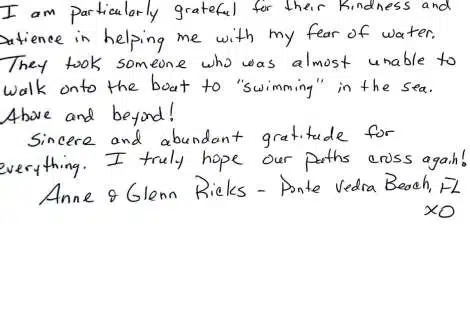 I am particularly grateful for their kindness and
patience in helping me with my fear of water.
They took someone who was almost unable to
walk onto the boat to "swimming" in the sea.
Above and beyond!
Sincere and abundant gratitude for
everything. I truly hope our paths cross again!
Anne & Glenn Ricks - Ponte Vedra Beach, FL
XO